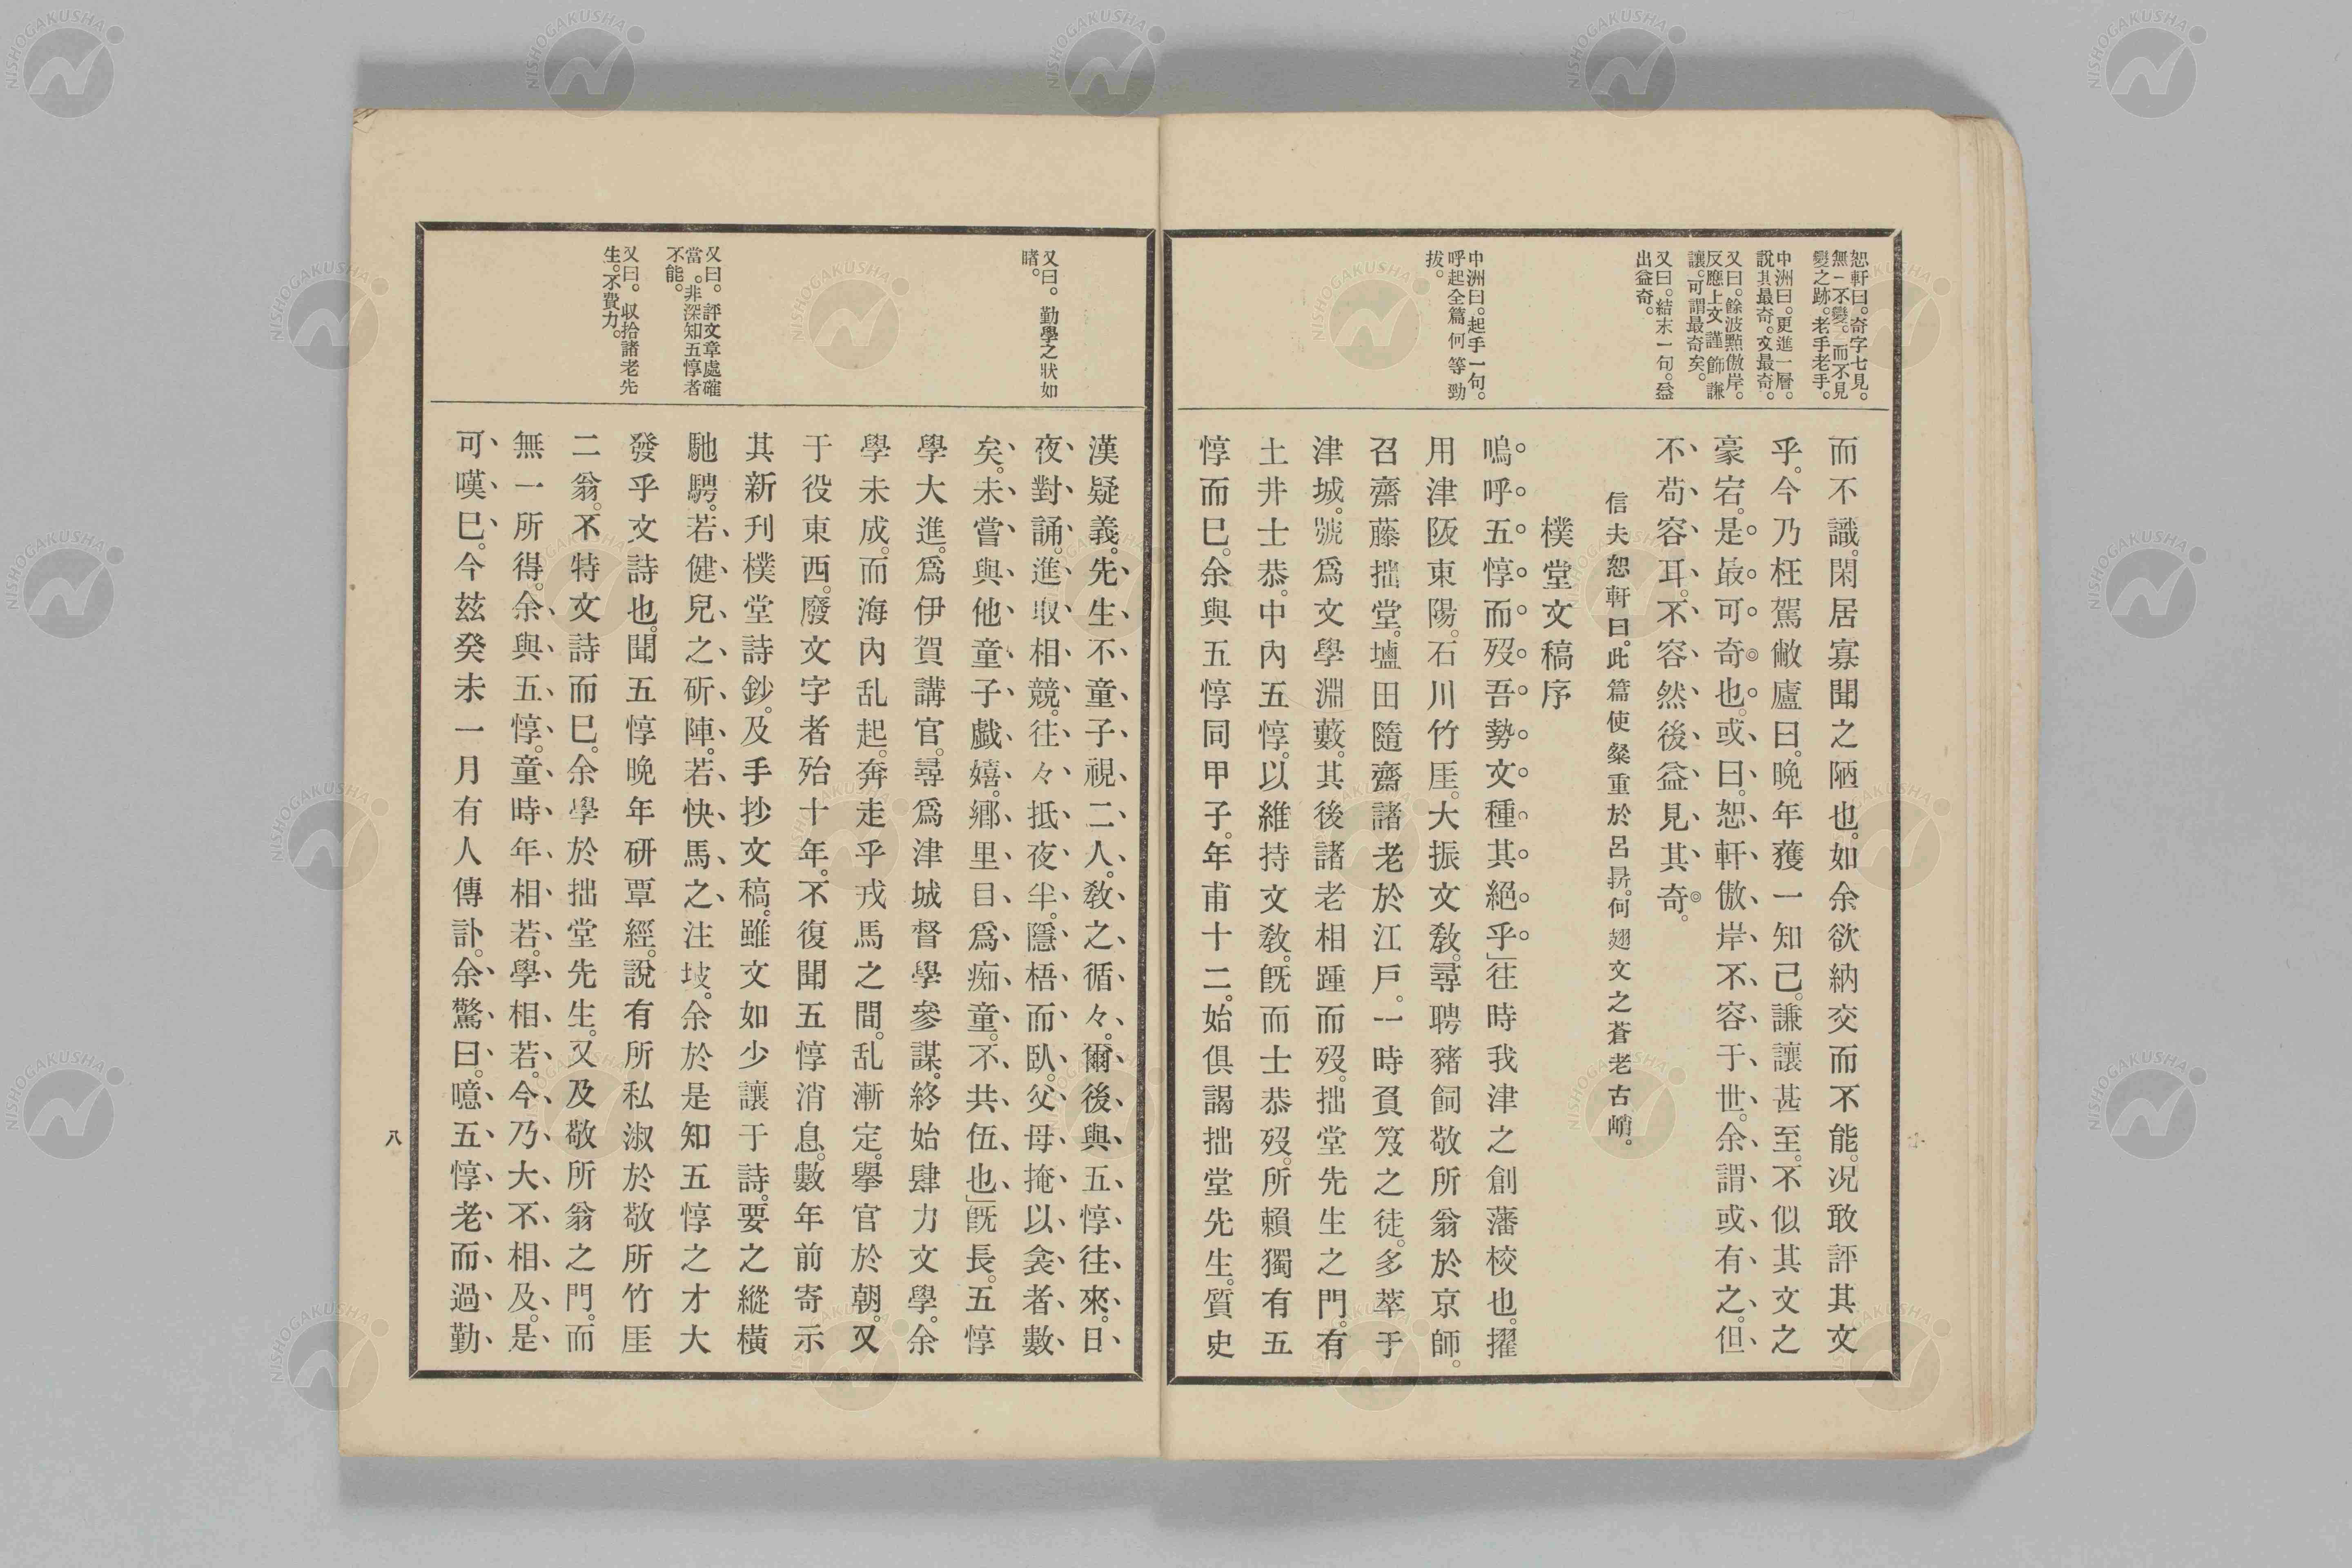 恕軒曰。奇字七見。
無一不變。而不見
變之跡。老手老手。
中洲曰。更進一層。
說其最奇。文最奇。
又曰。餘波點傲岸。
反應上文謹飭謙
讓。可謂最奇矣。
又曰。結末一句。益
出益奇。
中洲曰。起手一句。
呼起全篇何等勁
拔。
而不識。閑居寡聞之陋也。如余欲納交而不能。況敢評其文
乎。今乃枉駕敝廬曰。晚年獲一知己。謙讓甚至。不似其文之
豪宕。是最可奇也。或曰。恕軒傲岸不容于世。余謂或有之。但
不苟容耳。不容然後益見其奇。
信夫恕軒曰。此篇使粲重於呂昪。何翅文之蒼老古峭。
樸堂文稿序
嗚呼五惇而歿吾勢文種其絕乎」往時我津之創藩校也。擢
用津阪東陽。石川竹厓。大振文敎。尋聘豬飼敬所翁於京師。
召齋藤拙堂。壚田隨齋諸老於江戶。一時負笈之徒。多萃于
津城。號爲文學淵藪。其後諸老相踵而歿。拙堂先生之門。有
土井士恭。中內五惇。以維持文敎。旣而士恭歿。所賴獨有五
惇而已。余與五惇同甲子。年甫十二。始俱謁拙堂先生。質史
又曰。勤學之狀如
睹。
又曰。評文章處確
當。非深知五惇者
不能。
又曰。収拾諸老先
生。不費力。
漢疑義。先生不童子視二人。敎之循々。爾後與五惇往來。日
夜對誦。進取相競。往々抵夜半。隱梧而臥。父母掩以衾者數
矣。未嘗與他童子戲嬉。鄕里目爲痴童。不共伍也」旣長。五惇
學大進。爲伊賀講官。尋爲津城督學參謀。終始肆力文學。余
學未成。而海內乱起。奔走乎戎馬之間。乱漸定。擧官於朝。又
于役東西。廢文字者殆十年。不復聞五惇消息。數年前寄示
其新刊樸堂詩鈔。及手抄文稿。雖文如少讓于詩。要之縱橫
馳騁。若健兒之斫陣。若快馬之注坡。余於是知五惇之才大
發乎文詩也。聞五惇晚年研覃經。說有所私淑於敬所竹厓
二翁。不特文詩而已。余學於拙堂先生。又及敬所翁之門。而
無一所得。余與五惇。童時年相若。學相若。今乃大不相及。是
可嘆已。今茲癸未一月有人傳訃。余驚曰。噫五惇老而過勤
八